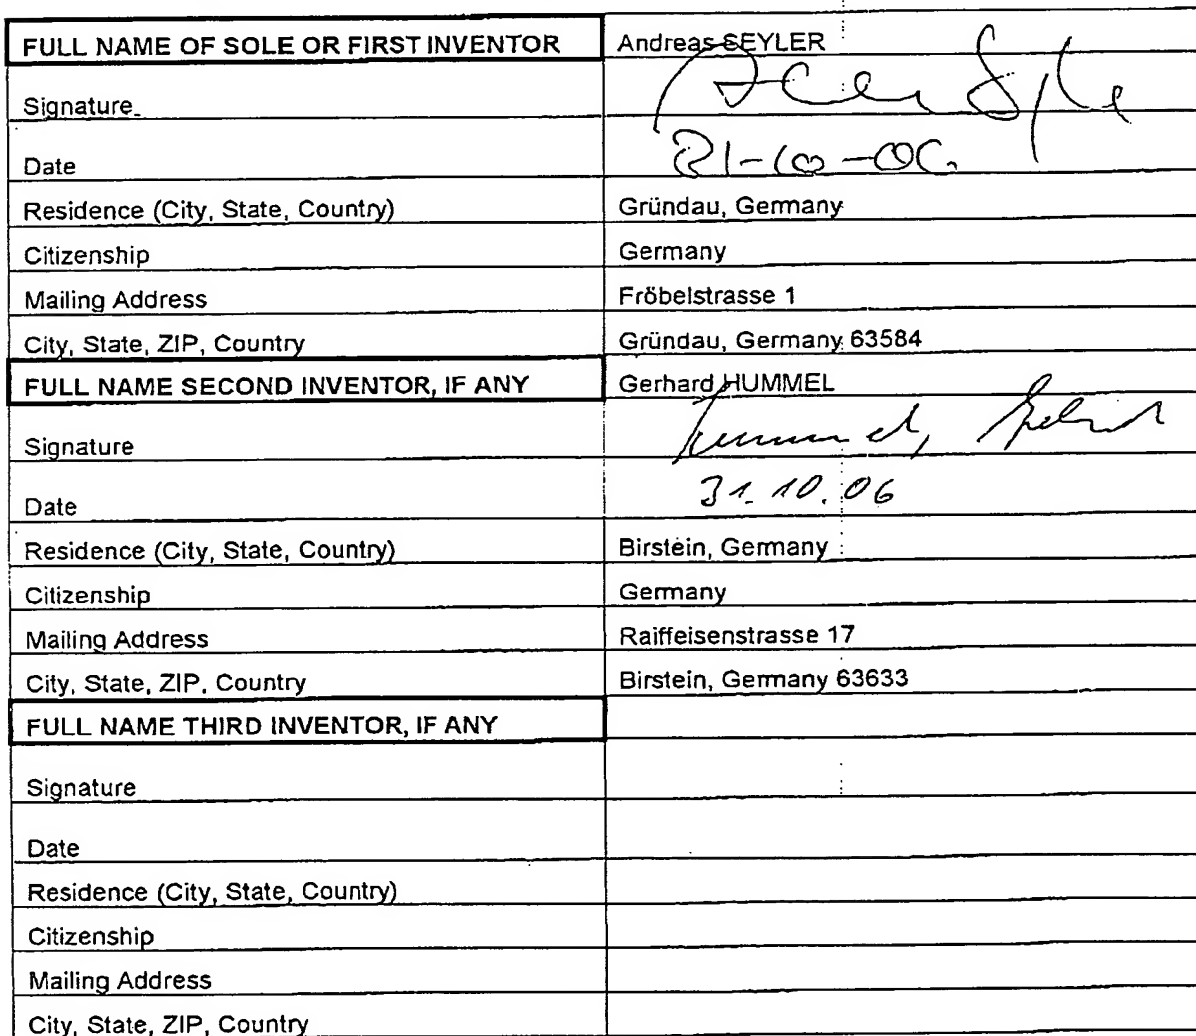 FULL NAME OF SOLE OR FIRST INVENTOR Andreas SEYLER
Signature
Date
Residence (City, State, Country) Gründau, Germany
Citizenship Germany
Mailing Address Fröbelstrasse 1
City, State, ZIP, Country Gründau, Germany 63584
FULL NAME SECOND INVENTOR, IF ANY Gerhard HUMMEL
Signature Hummel, Gerhard
Date 31.10.06
Residence (City, State, Country) Birstein, Germany
Citizenship Germany
Mailing Address Raiffeisenstrasse 17
City, State, ZIP, Country Birstein, Germany 63633
FULL NAME THIRD INVENTOR, IF ANY
Signature
Date
Residence (City, State, Country)
Citizenship
Mailing Address
City, State, ZIP, Country